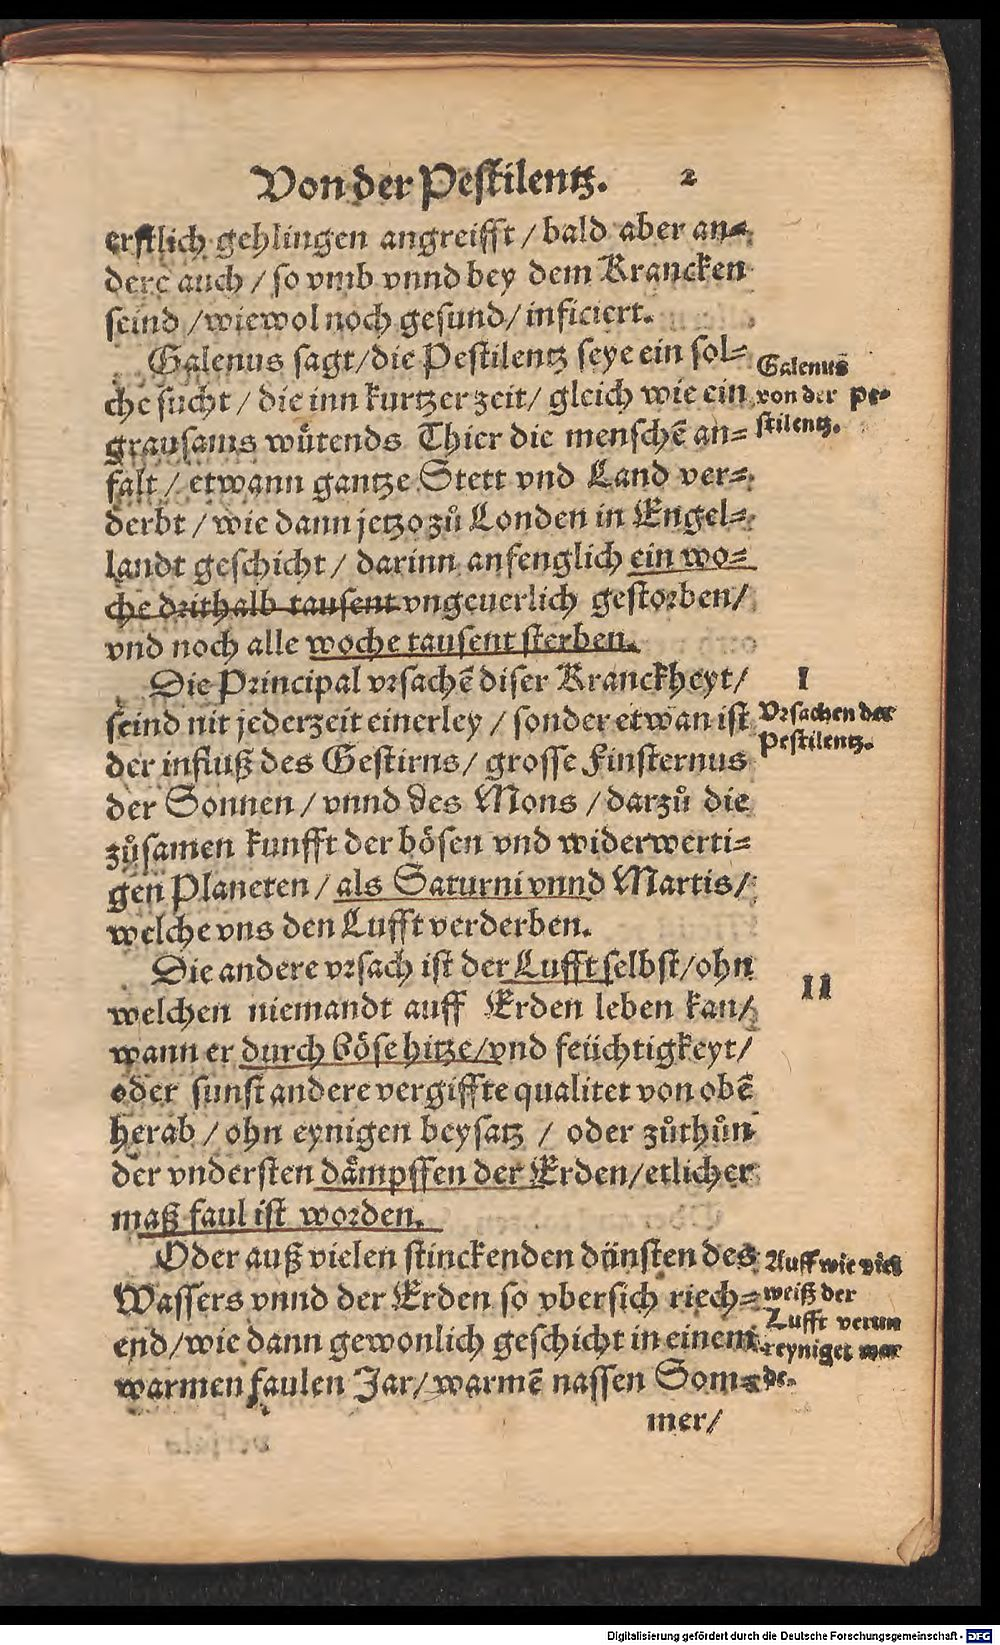 Von der Pestilentz. 2
erstlich gehlingen angreifft / bald aber an=
dere auch / so vmb vnnd bey dem Krancken
seind / wiewol noch gesund / inficiert.
Galenus sagt / die Pestilentz seye ein sol=
che sucht / die inn kurtzer zeit / gleich wie ein
grausams wütends Thier die menschẽ an=
falt / etwann gantze Stett vnd Land ver=
derbt / wie dann jetzo zů Londen in Engel=
landt geschicht / darinn anfenglich ein wo=
che drithalb tausent vngeuerlich gestorben /
vnd noch alle woche tausent sterben.
Galenus
von der Pe=
stilentz.
Die Principal vrsachẽ diser Kranckheyt /
seind nit jederzeit einerley / sonder etwan ist
der influß des Gestirns / grosse Finsternus
der Sonnen / vnnd des Mons / darzů die
zůsamen kunfft der bösen vnd widerwerti=
gen Planeten / als Saturni vnnd Martis /
welche vns den Lufft verderben.
I
Vrsachen der
Pestilentz.
Die andere vrsach ist der Lufft selbst / ohn
welchen niemandt auff Erden leben kan /
wann er durch böse hitze / vnd feüchtigkeyt /
oder sunst andere vergiffte qualitet von obẽ
herab / ohn eynigen beysatz / oder zůthůn
der vndersten dämpffen der Erden / etlicher
maß faul ist worden.
II
Oder auß vielen stinckenden dünsten des
Wassers vnnd der Erden so vbersich riech=
end / wie dann gewonlich geschicht in einem
warmen faulen Jar / warmẽ nassen Som=
mer /
Auff wie viel
weiß der
Lufft verun
reyniget wer
de.
Digitalisierung gefördert durch die Deutsche Forschungsgemeinschaft - DFG